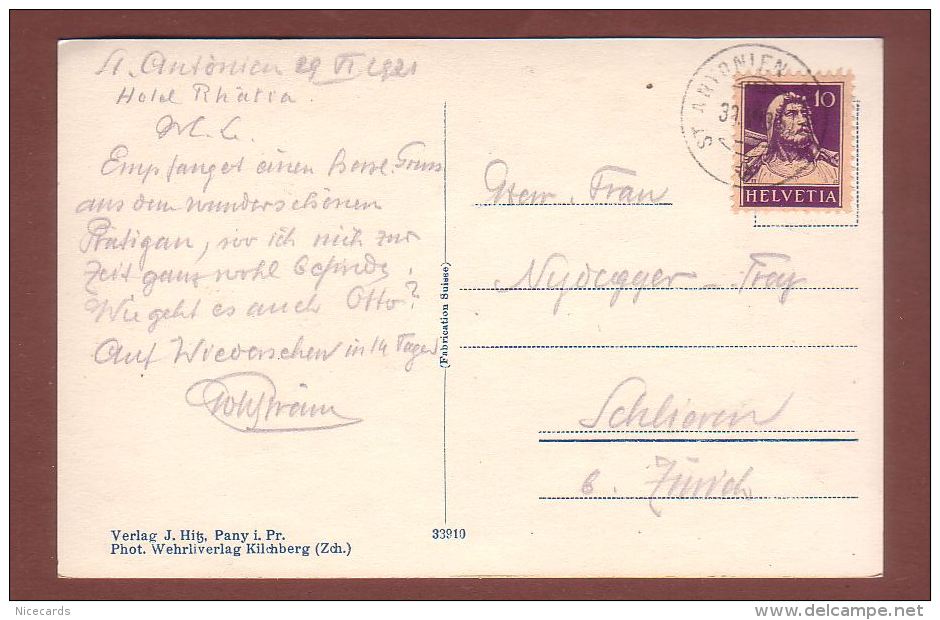 St. Antönien 29 VI 1921
Hotel Rhätia.
M. L.
Empfanget einen Gruss
aus dem wunderschönen
Prätigau, wo ich mich zur
Zeit ganz wohl befinde.
Wie geht es auch Otto?
Auf Wiedersehen in 14 Tagen
Verlag J. Hitz, Pany i. Pr.
Phot. Wehrliverlag Kilchberg (Zch.)
33910
(Fabrication Suisse)
ST ANTÖNIEN
10
HELVETIA
Frau
Nydegger - Frey
Schlieren
b. Zürich
Nicecards
delcampe.net